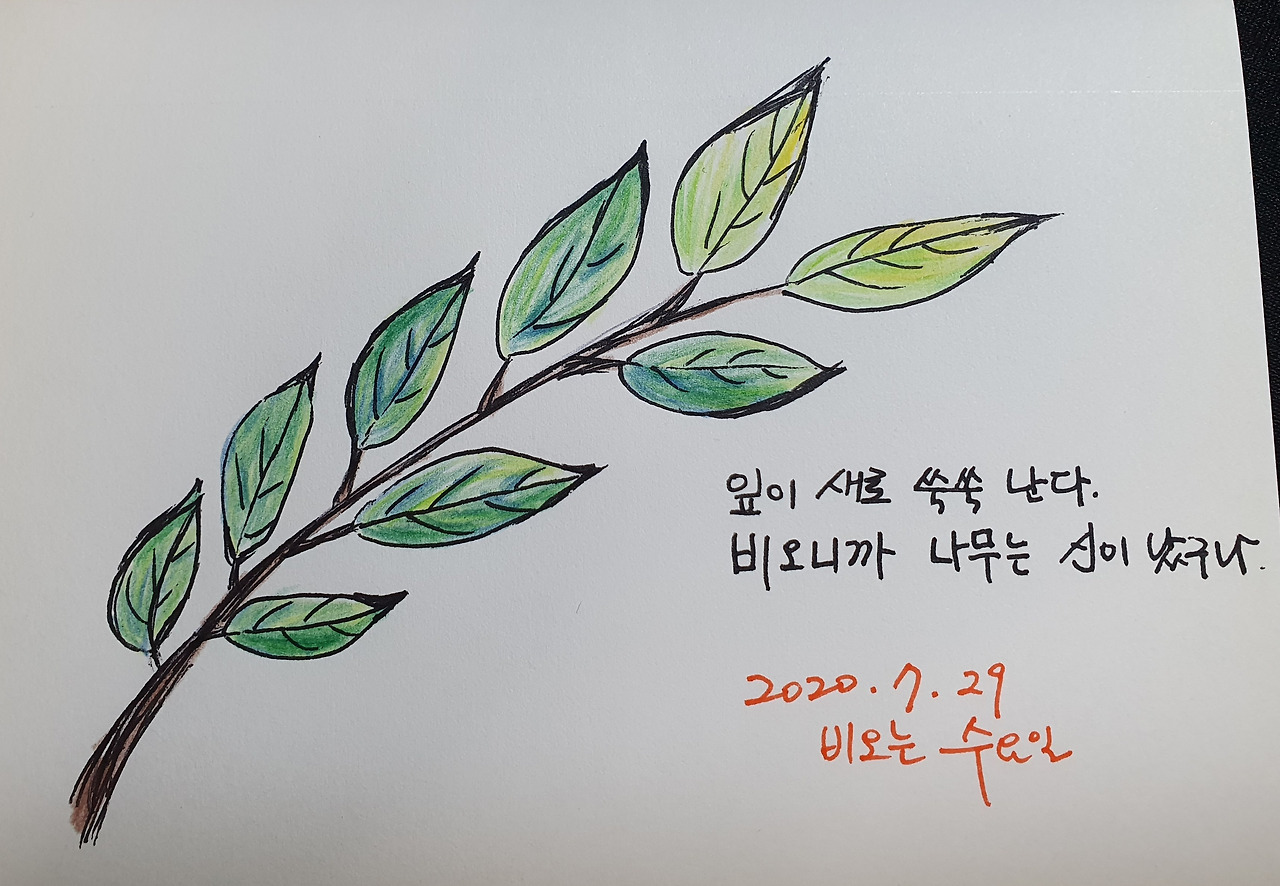 잎이 새로 쑥쑥 난다.
비오니까 나무는 신이 났구나.
2020. 7. 29
비오는 수요일